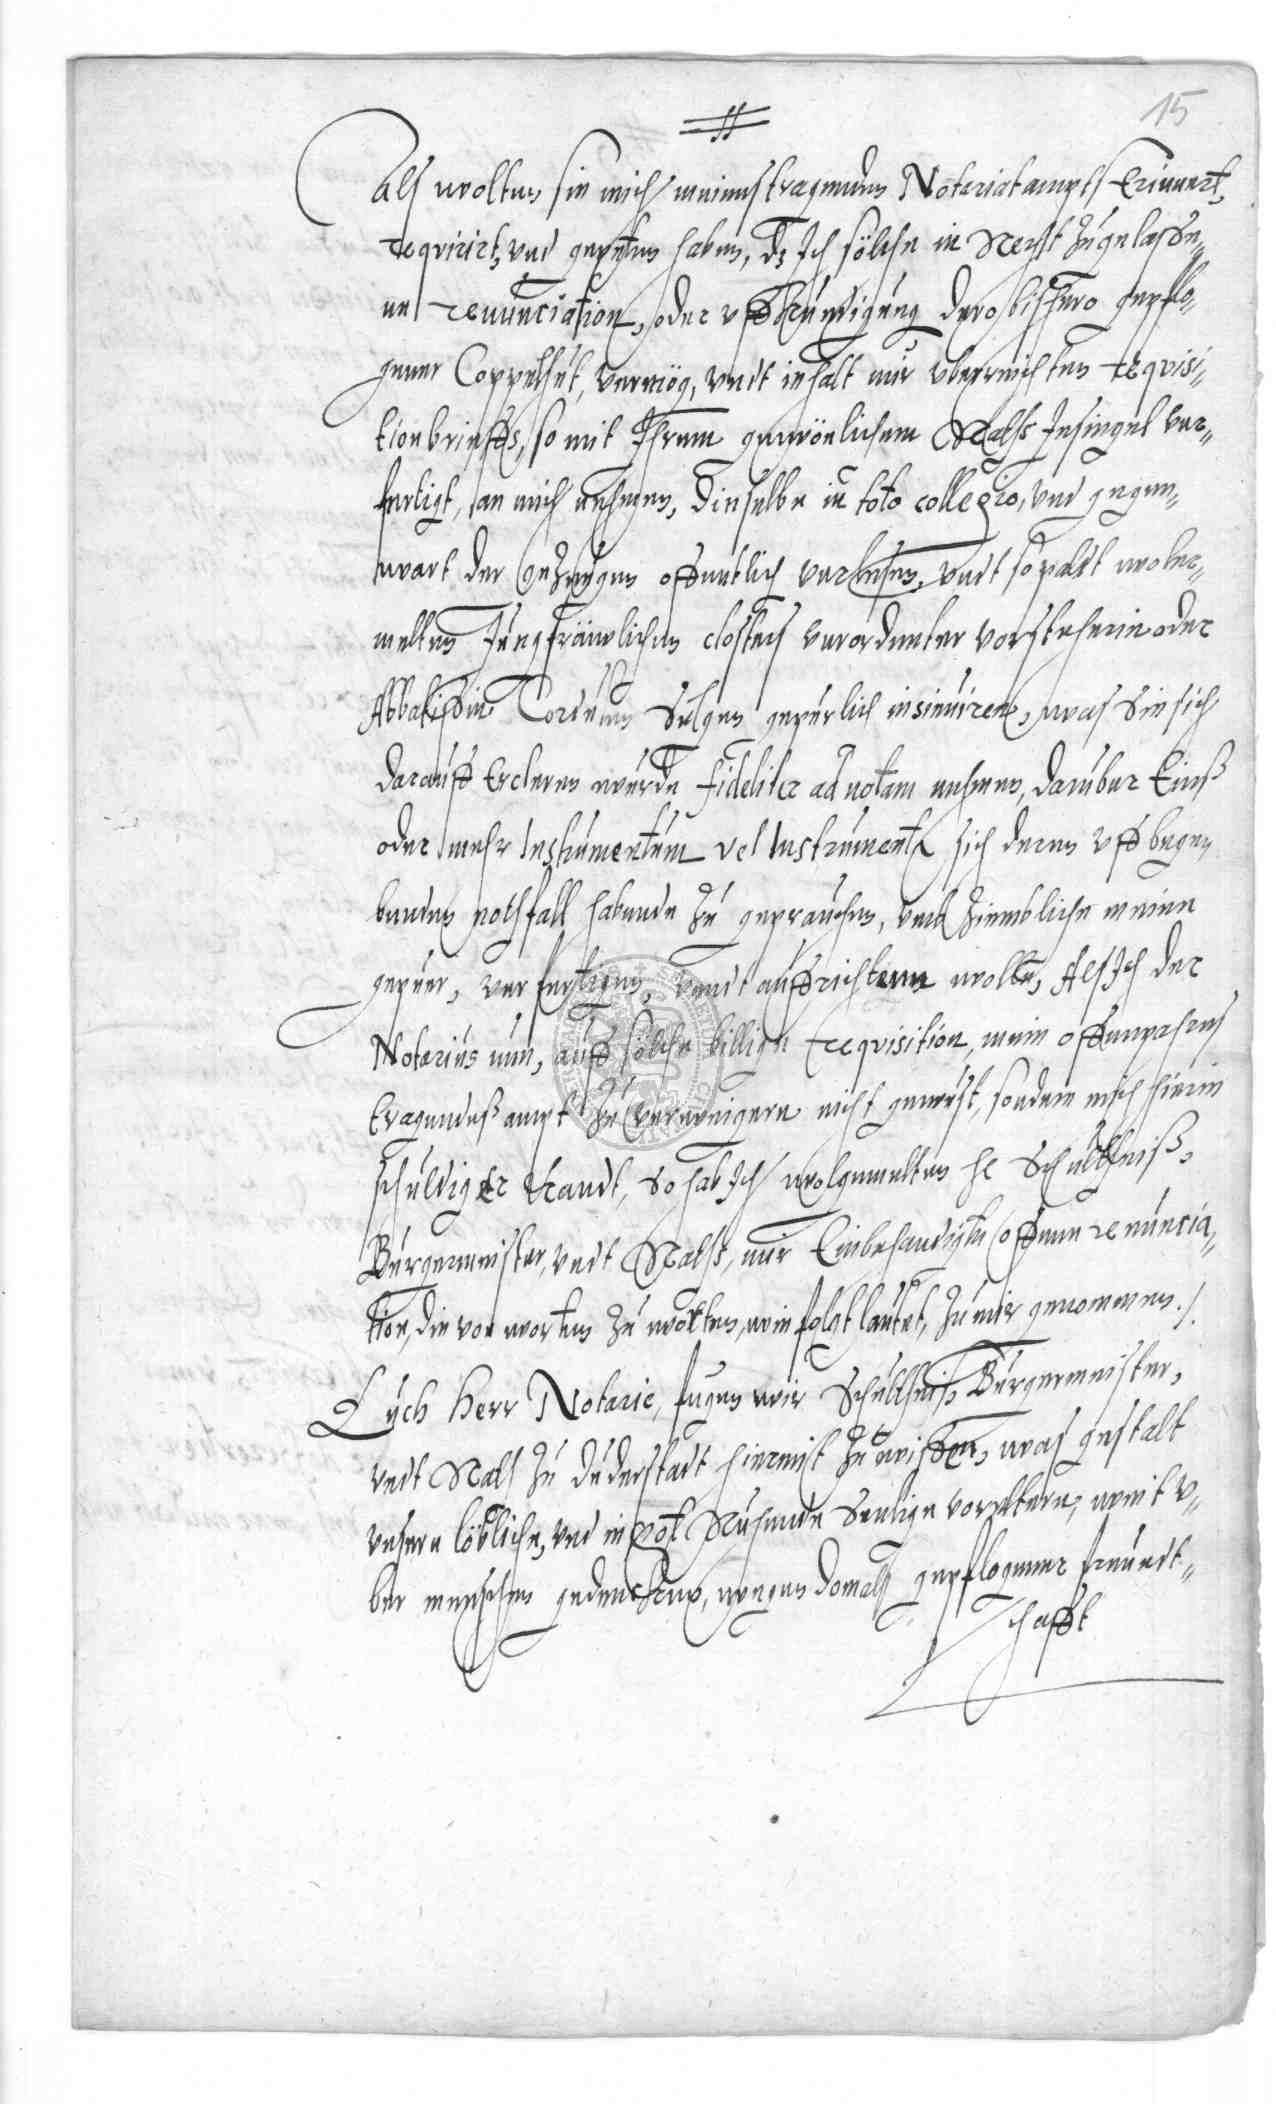 15
Als wolten sie mich meines tragenden Notariat ampts Erinnert,
requirirt, vnd gepeten haben, dz Ich sölche in Recht zugelasse„
ne renunciation, oder vffkundigung dero bißhero gepflo„
gener Coppelhut, vermög, vndt inhalt mir vberreichten requisi„
tionbrieffs, so mit Ihrem gewönlichem Raths Insiegel ver„
fertigt, an mich nehmen, Dieselbe in toto collegio, vnd gegen„
wart der gezeugen offentlich verlesen, vndt so paldt woler„
melten Jungfräwlichen closters verordenter vorsteherin oder
Abbatissin Corden Sulgen gepürlich insinuiren, was Sie sich
darauff Ercleren würde fideliter ad notam nehmen, darüber Einß
oder mehr Instrumentum vel Instrumenta sich deren vff bege„
benden nothfall habende zu geprauchen, vmb ziembliche meine
gepüer, verfertigen, vndt auffrichtenn wolle, Als Ich der
Notarius nun, auff sölche billige requisition, mein offenwahres
tragendeß ampt zu verweigern nicht gewust, sondern mich hierin
schuldig erkandt, So hab Ich wolgemelten hr Schultheiß,
Bürgermeister, vndt Raths, mir Einbehandigte offene renuncia„
tion, die von worten zu worten, wie folgt lautet, zu mir genommen ./.
Euch Herr Notarie, fugen wir Schultheiß Bürgermeister,
vndt Rath zu Duderstadt hiermit zu wissen, was gestalt
vnsere löbliche, vnd in Got Ruhende Seelige vorältern, weit v„
ber menschen gedencken, wegen domals gepflogener freundt„
schafft